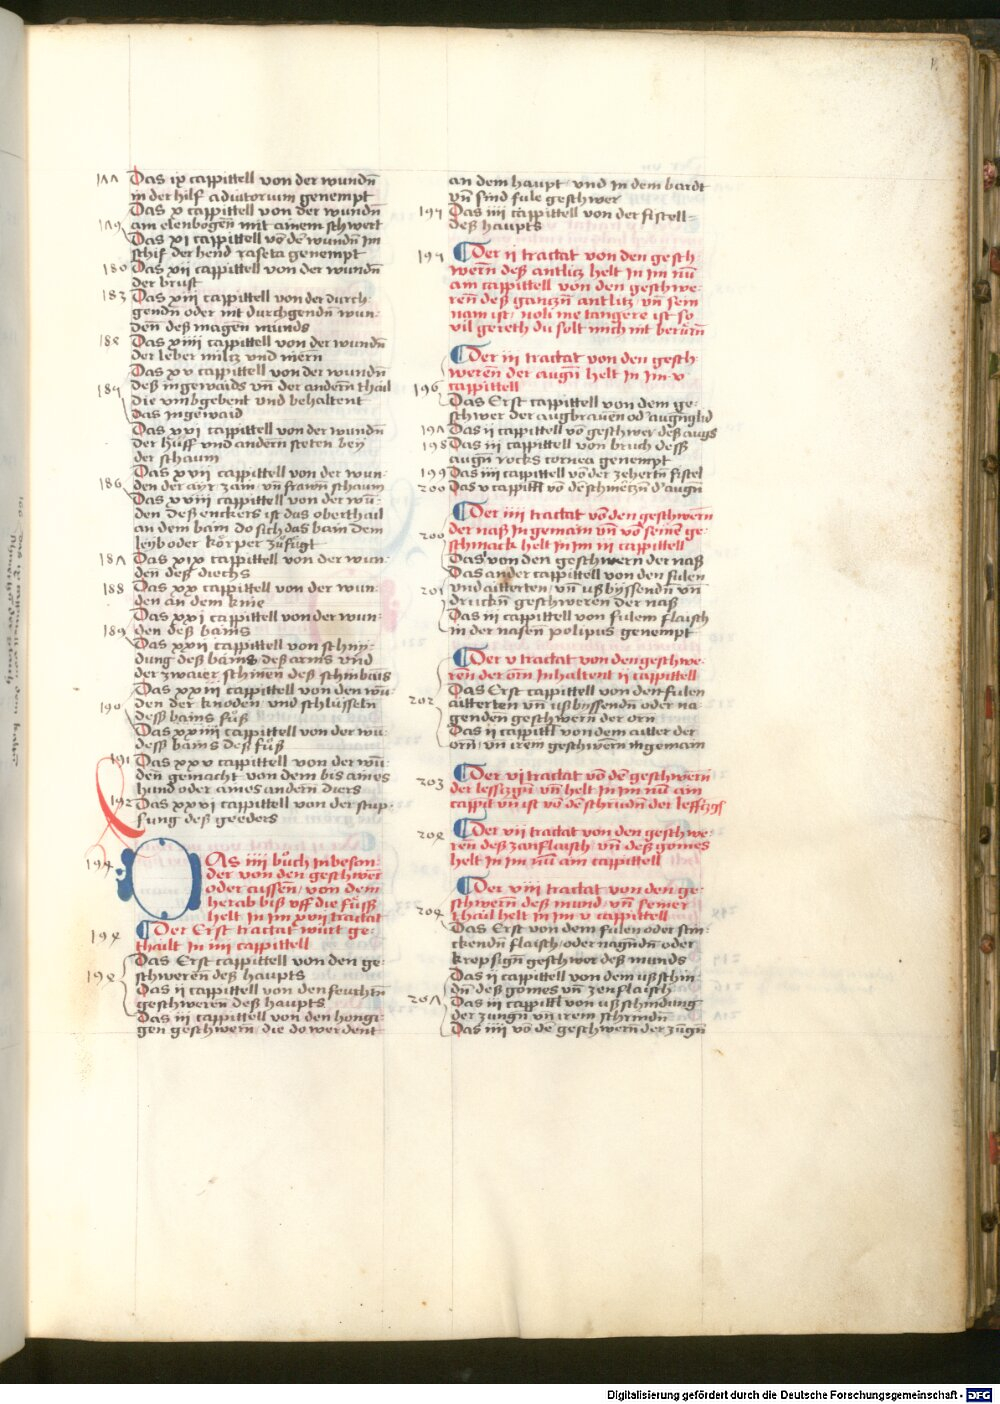 Das ix cappittell von der wundñ
in der hilf adiutorium genempt
Das x cappittell von der wundñ
am elenbogen mit ainem schwert
Das xi cappittell võ dẽ wundñ im
schif der hend raseta genempt
180 Das xii cappittell von der wundñ
der brust
183 Das xiii cappittell von der durch-
gendñ oder nit durchgendñ wun-
den deß magen munds
Das xiiii cappittell von der wundñ
der leber miltz vnd niern
Das xv cappittell von der wundñ
deß ingewaids vñ der andern thail
die vmbgebent vnd behaltent
das ingewaid
Das xvi cappittell von der wundñ
der hüff vnd andern steten bey
der schaum
Das xvii cappittell von der wun-
186 den der ayr zain vñ frawñ schaum
Das xviii cappittell von der wũ-
den deß enckers ist das oberthail
an dem bain do sich das bain dem
leyb oder körper zůfügt
Das xix cappittell von der wun-
den deß diechs
188 Das xx cappittell von der wun-
den an dem knie
Das xxi cappittell von der wun-
189 den deß bains
Das xxii cappittell von schny-
dung deß bains deß arms vnd
der zwaier schinen deß schinbains
Das xxiii cappittell von den wũ-
190 den der knoden vnd schlüsseln
deß bains füß
Das xxiiii cappittell von der wũ-
deß bains deß füß
191 Das xxv cappittell von der wũ-
den gemacht von dem bis aines
hund oder aines andern diers
192 Das xxvi cappittell von der stup-
fung deß geeders
DAS iiii bůch in beson-
der von den geschwer
oder aussen von dem
herab biß vff die füß
helt in im xvii tractat
Der Erst tractat würt ge-
thailt in iiii cappittell
Das Erst cappittell von den ge-
schweren deß haupts
Das ii cappittell von den feuchtñ
geschweren deß haupts
Das iii cappittell von den hongi-
gen geschwern die do werdent
an dem haupt vnd in dem bardt
vñ sind fule geschwer
Das iiii cappittell von der fistell
deß haupts
Der ii tractat von den gesch-
wern deß antlitz helt in im nũ
ain cappittell von den geschwe-
ren deß gantzñ antlitz vñ sein
nam ist noli me tangere ist so
vil gereth du solt mich nit berürñ
Der iii tractat von den gesch-
weren der augñ helt in im v
196 cappittell
Das Erst cappittell von dem ge-
schwer der augbrauen
Das ii cappittell võ geschwer deß augs
198 Das iii cappittell von bruch deß
augñ rocks cornea genempt
199 Das iiii cappittell võ der zehertñ fistel
200 Das v cappittl võ dẽ schmertzñ d' augñ
Der iiii tractat võ den geschwern
der naß in gemain vñ võ seinẽ ge-
200 schmack helt in im iii cappittell
Das von den geschwern der naß
Das ander cappittell von den fulen
201 vnd aitterten vñ ußbyssendñ vñ
druckñ geschweren der naß
Das iii cappittell von fulem flaisch
in der nasen polipus genempt
Der v tractat von den geschwe-
ren der orn inhaltent ii cappittell
Das Erst cappittell von den fulen
202 aitterten vñ ußbyssendñ oder na-
genden geschwern der orn
Das ii cappittl von dem aitter der
orn vñ irem geschwern ingemain
Der vi tractat võ dẽ geschwern
203 der lefftzgñ vñ helt in im nũ ain
cappit vñ ist võ dẽ schrũdñ der lefftzgñ
Der vii tractat von den geschwe-
ren deß zanflaisch vñ deß gomes
helt in im nũ ain cappittell
Der viii tractat von den ge-
schwern deß mund vñ seiner
thail helt in im v cappittell
Das Erst von dem fulen oder stin-
ckendñ flaisch oder nagndñ oder
krepsigñ geschwer deß munds
Das ii cappittell von dem ußschin-
dñ deß gomes vñ zenflaisch
Das iii cappittl von ußschindung
der zungñ vñ irem schrindñ
Das iiii võ dẽ geschwern der zũgñ
Digitalisierung gefördert durch die Deutsche Forschungsgemeinschaft - DFG